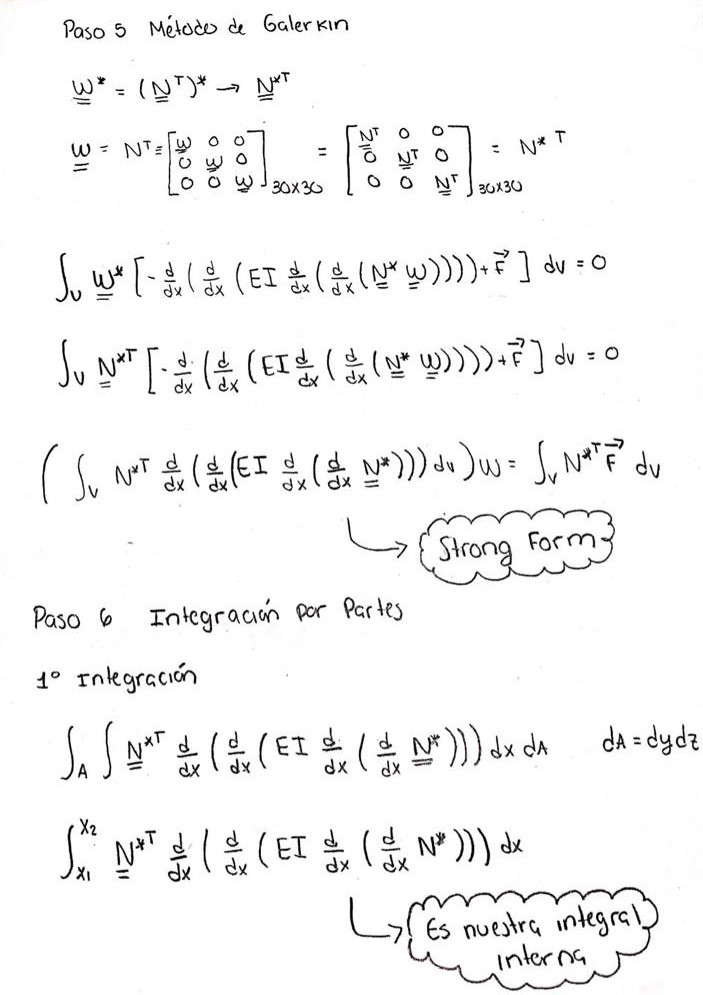 Paso 5 Método de Galerkin
W* = (N^T)* → N*^T
W = N^T = [W 0 0; 0 W 0; 0 0 W]30x30 = [N^T 0 0; 0 N^T 0; 0 0 N^T]30x30 = N* T
∫v W* [-d/dx (d/dx (EI d/dx (d/dx (N* W)))) + F→] dv = 0
∫v N*^T [-d/dx (d/dx (EI d/dx (d/dx (N* W)))) + F→] dv = 0
(∫v N*^T d/dx (d/dx (EI d/dx (d/dx N*))) dv) W = ∫v N*^T F→ dv
Strong Form
Paso 6 Integración por Partes
1° Integración
∫A ∫ N*^T d/dx (d/dx (EI d/dx (d/dx N*))) dx dA dA = dydz
∫x1^x2 N*^T d/dx (d/dx (EI d/dx (d/dx N*))) dx
Es nuestra integral
interna